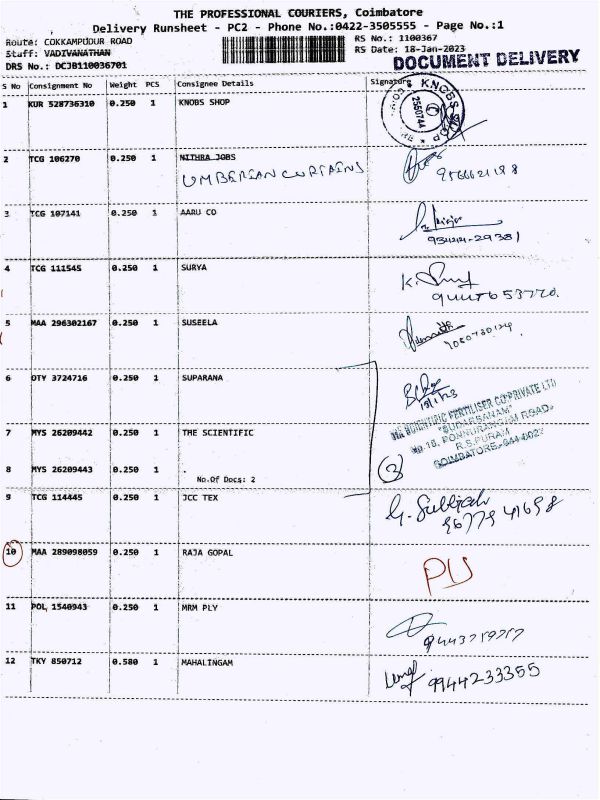 THE PROFESSIONAL COURIERS, Coimbatore
Delivery Runsheet - PC2 - Phone No.:0422-3505555 - Page No.:1
Route: COKKAMPUDUR ROAD
RS No.: 1100367
Staff: VADIVANATHAN
RS Date: 18-Jan-2023
DRS No.: DCJB110036701
DOCUMENT DELIVERY
S No Consignment No Weight PCS Consignee Details Signature
1 KUR 528736310 0.250 1 KNOBS SHOP
KNOBS SHOP
2550744
2 TCG 106270 0.250 1 NITHRA JOBS
UMBERIAN CURTAINS
3 TCG 107141 0.250 1 AARU CO
4 TCG 111545 0.250 1 SURYA
5 MAA 296302167 0.250 1 SUSEELA
6 OTY 3724716 0.250 1 SUPARANA
18/1/23
7 MYS 26209442 0.250 1 THE SCIENTIFIC
THE SCIENTIFIC FERTILISER CO PRIVATE LTD
"SUDARSANAM"
No 16, PONNURANGAM ROAD
R.S.PURAM
COIMBATORE
8 MYS 26209443 0.250 1 .
No.Of Docs: 2
9 TCG 114445 0.250 1 JCC TEX
G. Subbiah
10 MAA 289098059 0.250 1 RAJA GOPAL
11 POL 1540943 0.250 1 MRM PLY
12 TKY 850712 0.580 1 MAHALINGAM
9944233355